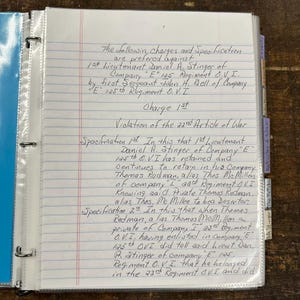 The following charges and Specification
are preferred against
1st Lieutenant Daniel A. Stinger of
Company "E" 125 Regiment O.V.I.
by First Sergeant John H. Doll of Company
"E" 125th Regiment O.V.I.
Charge 1st
Violation of the 22nd Article of War
Specification 1st In this that 1st Lieutenant
Daniel A. Stinger of Company "E"
125th O.V.I. has retained and
continues to retain in his Company
Thomas Redman, alias Thos McMillen
of company I, 23rd Regiment O.V.I.
Knowing said Private Thomas Redman,
alias, Thos. McMillen to be a Deserter
Specification 2nd In this that when Thomas
Redman, alias Thomas McMillen, a
private of Company I, 23rd Regiment
O.V.I. having enlisted in Company "E"
125th O.V.I. did tell said Lieut Dan.
A. Stinger of company "E", 125
Regiment O.V.I. that he belonged
in the 23rd Regiment O.V.I. and did